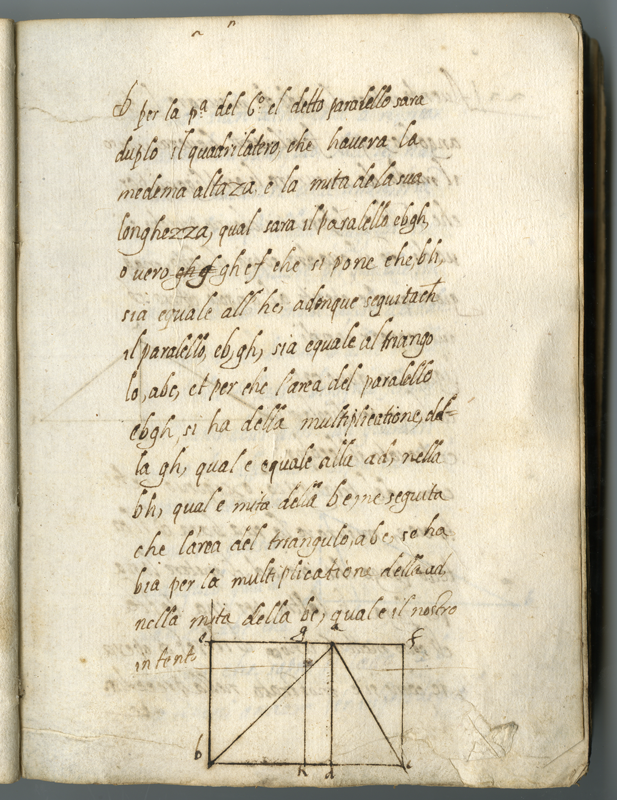 per la pª del 6º el detto paralello sara
duplo il quadrilatero, che havera la
medema altaza, e la mita de la sua
longhezza, qual sara il paralello ebgh,
o vero ghef che si pone che, bh,
sia equale all' hc, adonque seguita ch
il paralello, eb, gh, sia equale al triango
lo, abc, et per che l'area del paralello
ebgh, si ha della multiplicatione, del-
la gh, qual e equale alla ad, nella
bh, qual e mita della bc, ne seguita
che l'area del triangulo, abc, se ha
bia per la multiplicatione della ad
nella mita della bc, qual e il nostro
intento
e g a f
b h d c